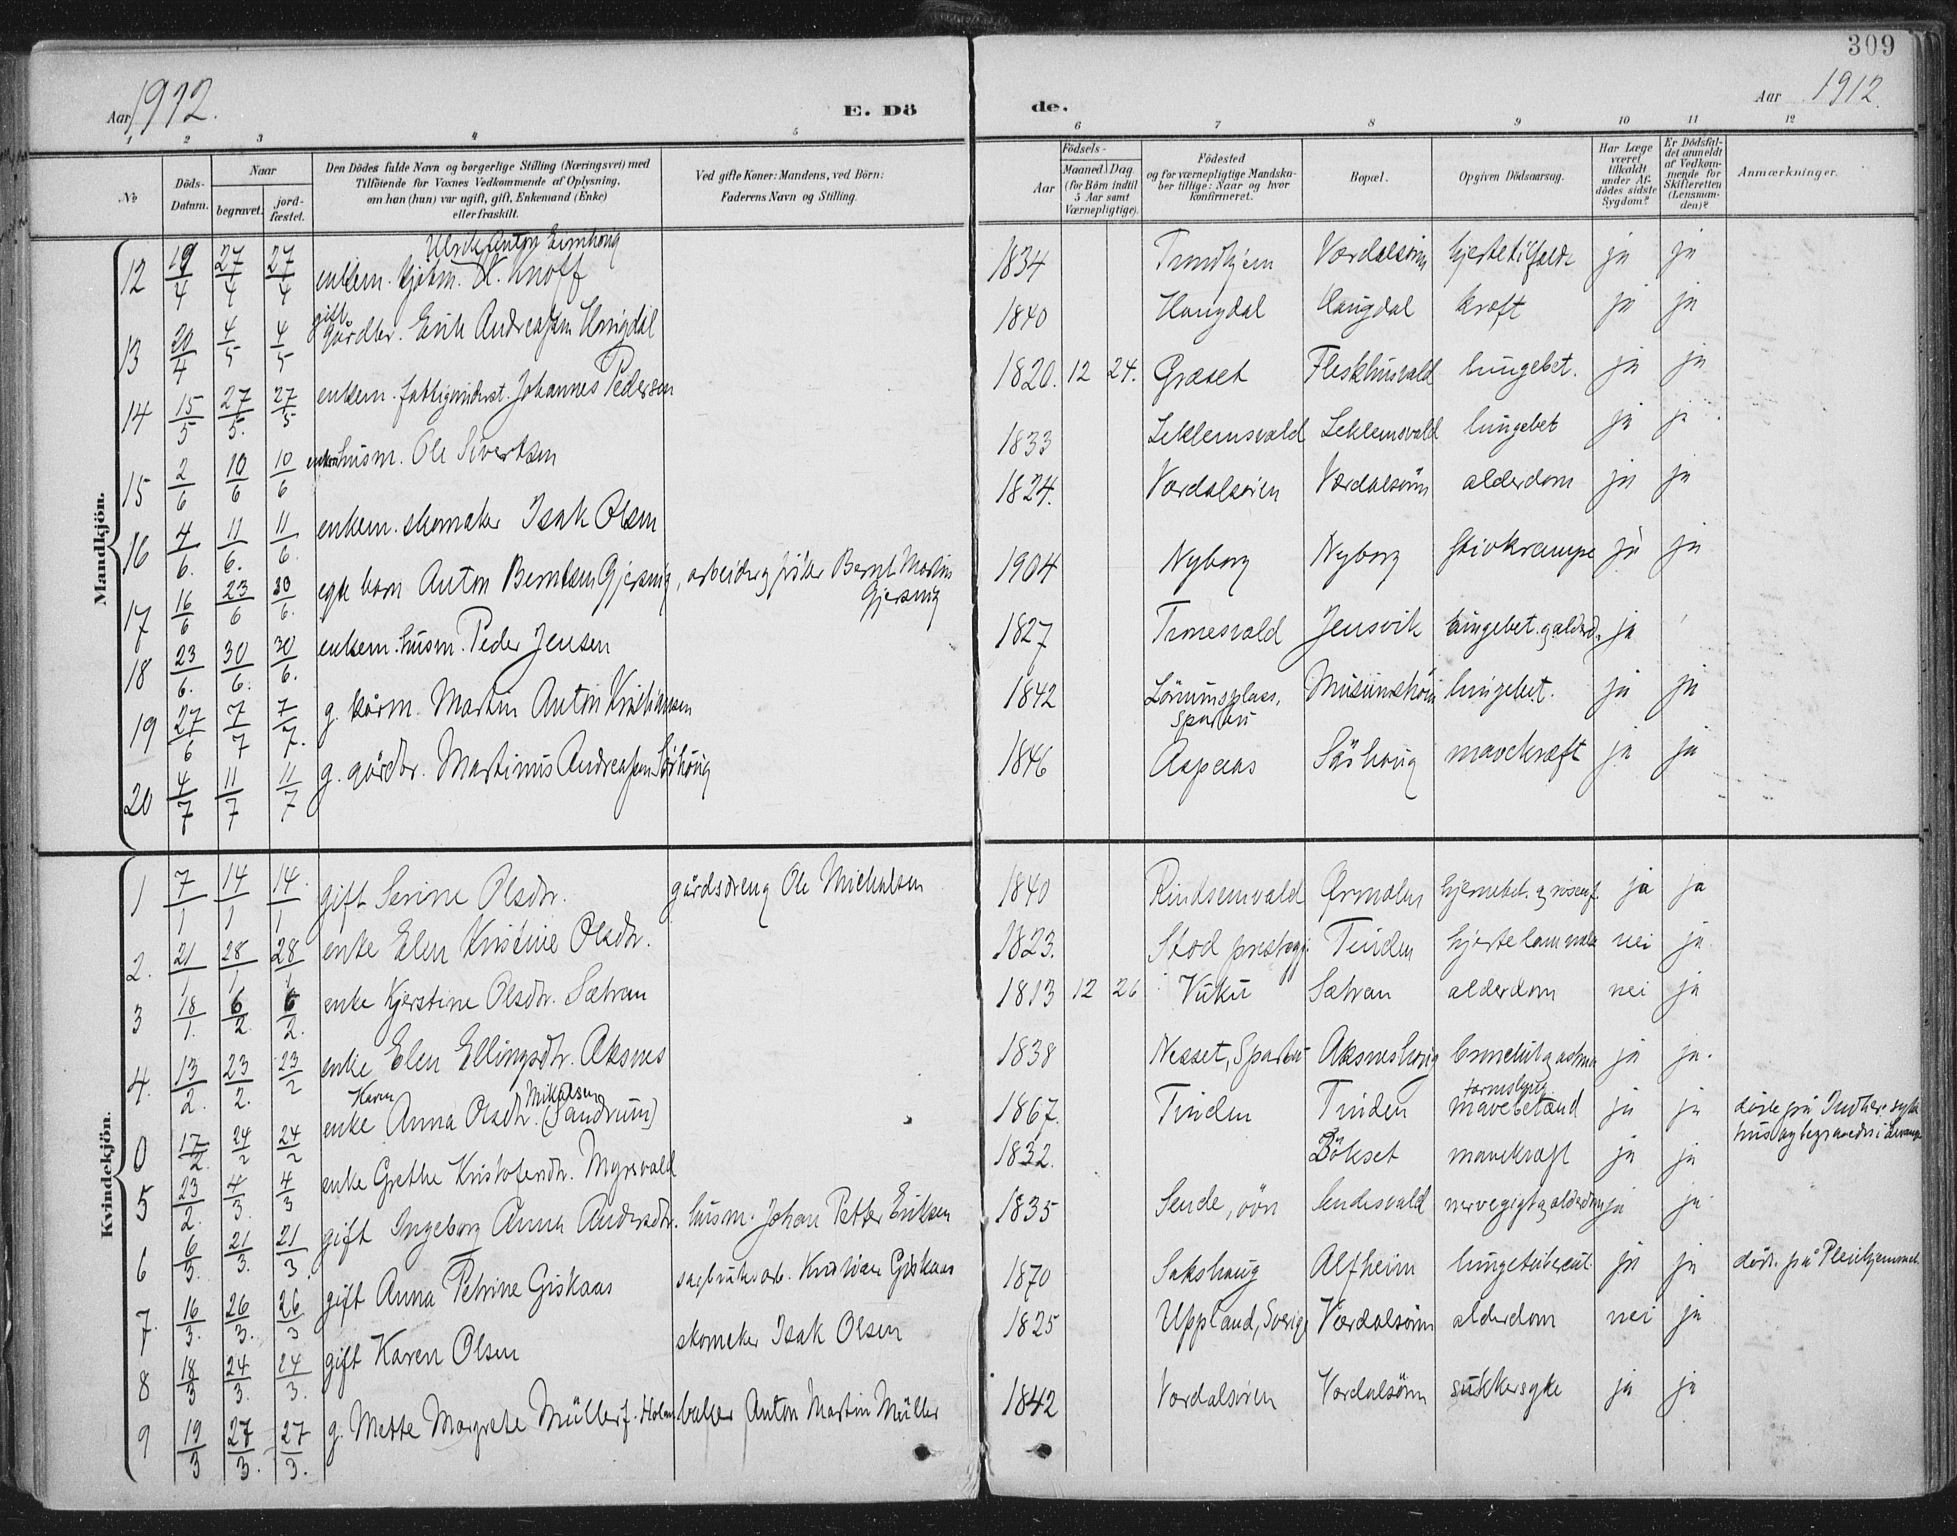 309
Aar 1912.
E. Dö
de.
Aar 1912.
1 2 3 4 5 6 7 8 9 10 11 12
No
Döds-Datum.
Naar
begravet.
jord-fæstet.
Den Dödes fulde Navn og borgerlige Stilling (Næringsvei) med
Tilföiende for Voxnes Vedkommende af Oplysning,
om han (hun) var ugift, gift, Enkemand (Enke)
eller fraskilt.
Ved gifte Koner: Mandens, ved Börn:
Faderens Navn og Stilling.
Födsels-
Aar
Maaned. Dag.
(for Börn indtil
5 Aar samt
Værnepligtige).
Födested
og for værnepligtige Mandska-
ber tillige: Naar og hvor
konfirmeret.
Bopæl.
Opgiven Dödsaarsag.
Har Læge
været
tilkaldt
under Af-
dödes sidste
Sygdom?
Er Dödsfal-
det anmeldt
af Vedkom-
mende for
Skifteretten
(Lensman-
den)?
Anmærkninger.
Mandkjön.
Ulrik Anton
12 19/4 27/4 27/4 enkem. H. Knoff 1834 Trondhjem Værdalsøren hjertetilfælde ja ja
gift
13 20/4 4/5 4/5 Gårdbr. Erik Andreassen Haugdal 1840 Haugdal Haugdal kræft ja ja
14 15/5 27/5. 27/5 enkem. fattigunderst. Johannes Pedersen 1820. 12 24. Græset Fleskhusvald lungebet. ja ja
15 2/6 10/6 10/6 enkem husm. Ole Sivertsen 1833 Leklemsvald Leklemsvald lungebet ja ja
16 4/6. 11/6. 11/6. enkem. skomaker Isak Olsen 1824. Værdalsøren Værdalsøren alderdom ja ja
17 16/6 23/6 30/6. egte barn Anton Berntsen Gjersvig, arbeider og fisker Bernt Martin
Gjersvig 1904 Nyborg Nyborg stivkrampe ja ja
18 23/6. 30/6. 30/6. enkem. husm. Peder Jensen 1827 Tronesvald Jensvik lungebet. og alderd. ja
19 27/6 7/7 7/7. g. kårm. Martin Anton Kristiansen 1842 Lörumsplass,
Sparbu lungebet. ja ja
20 4/7 11/7 11/7 g. gårdbr. Martinus Andreassen Sörhaug 1846 Aspaas Sörhaug mavekræft ja ja
Kvindekjön.
1 7/1 14/1 14/1 gift Serine Olsdtr. gårdsdreng Ole Mickalsen 1840 Rindsemvald Ørmelen hjernebet. og ja ja
2. 21/1 28/1 28/1 enke Elen Kristine Olsdtr. 1823. Stod prestegj. Tinden hjertelammelse nei ja
3 18/1. 6/2 6/2. enke Kjerstine Olsdtr. Sætran 1813 12 26 Vuku Sætran alderdom nei ja
4. 13/2. 23/2. 23/2 enke Elen Ellingsdtr. Aksnes 1838 Nesset, Sparbu Aksneshaug bronchit og astma ja ja.
Karen Mikalsen
0 17/2. 24/2 24/2 enke Anna Olsdtr. (Sandrum) 1867. Tinden Tinden mavebetænd ja ja döde på Indher. syke
hus og begravedes i Levanger
5 23/2. 4/3. 4/3 enke Grethe Kristofersdtr. Myrvald 1832. Bökset mavekræft ja ja
6 6/3. 21/3. 21/3. gift Ingeborg Anna Andersdtr. husm. Johan Petter Eriksen 1835 Sende, övn Sendesvald nervegigt og alderdom ja ja
7. 16/3. 26/3. 26/3 gift Anna Petrine Giskaas sagbruksarb. Kristian Giskaas 1870 Sakshaug Alfheim lungetuberkul. ja ja död. på Pleiehjemmet
8 18/3 24/3. 24/3. gift Karen Olsen skomaker Isak Olsen 1825 Uppland, Sverige Værdalsøren alderdom nei ja
9 19/3 27/3. 27/3. g. Mette Margrete Müller f. Holm baker Anton Martin Müller 1842 Værdalsøren Værdalsøren sukkersyke ja ja